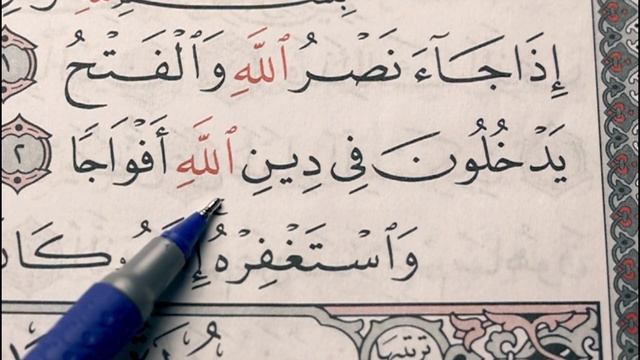 إِذَا جَآءَ نَصْرُ ٱللَّهِ وَٱلْفَتْحُ ١
يَدْخُلُونَ فِى دِينِ ٱللَّهِ أَفْوَاجًا ٢
وَٱسْتَغْفِرْهُ